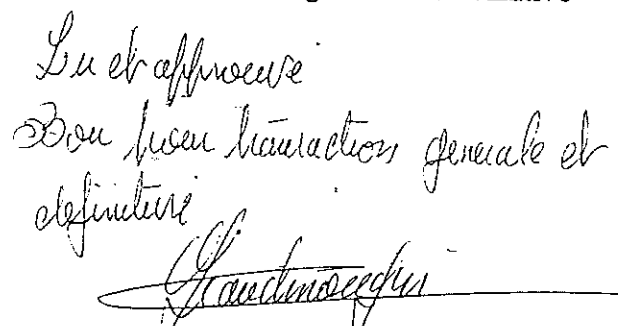 Lu et approuvé
Bon pour transaction generale et
definitive